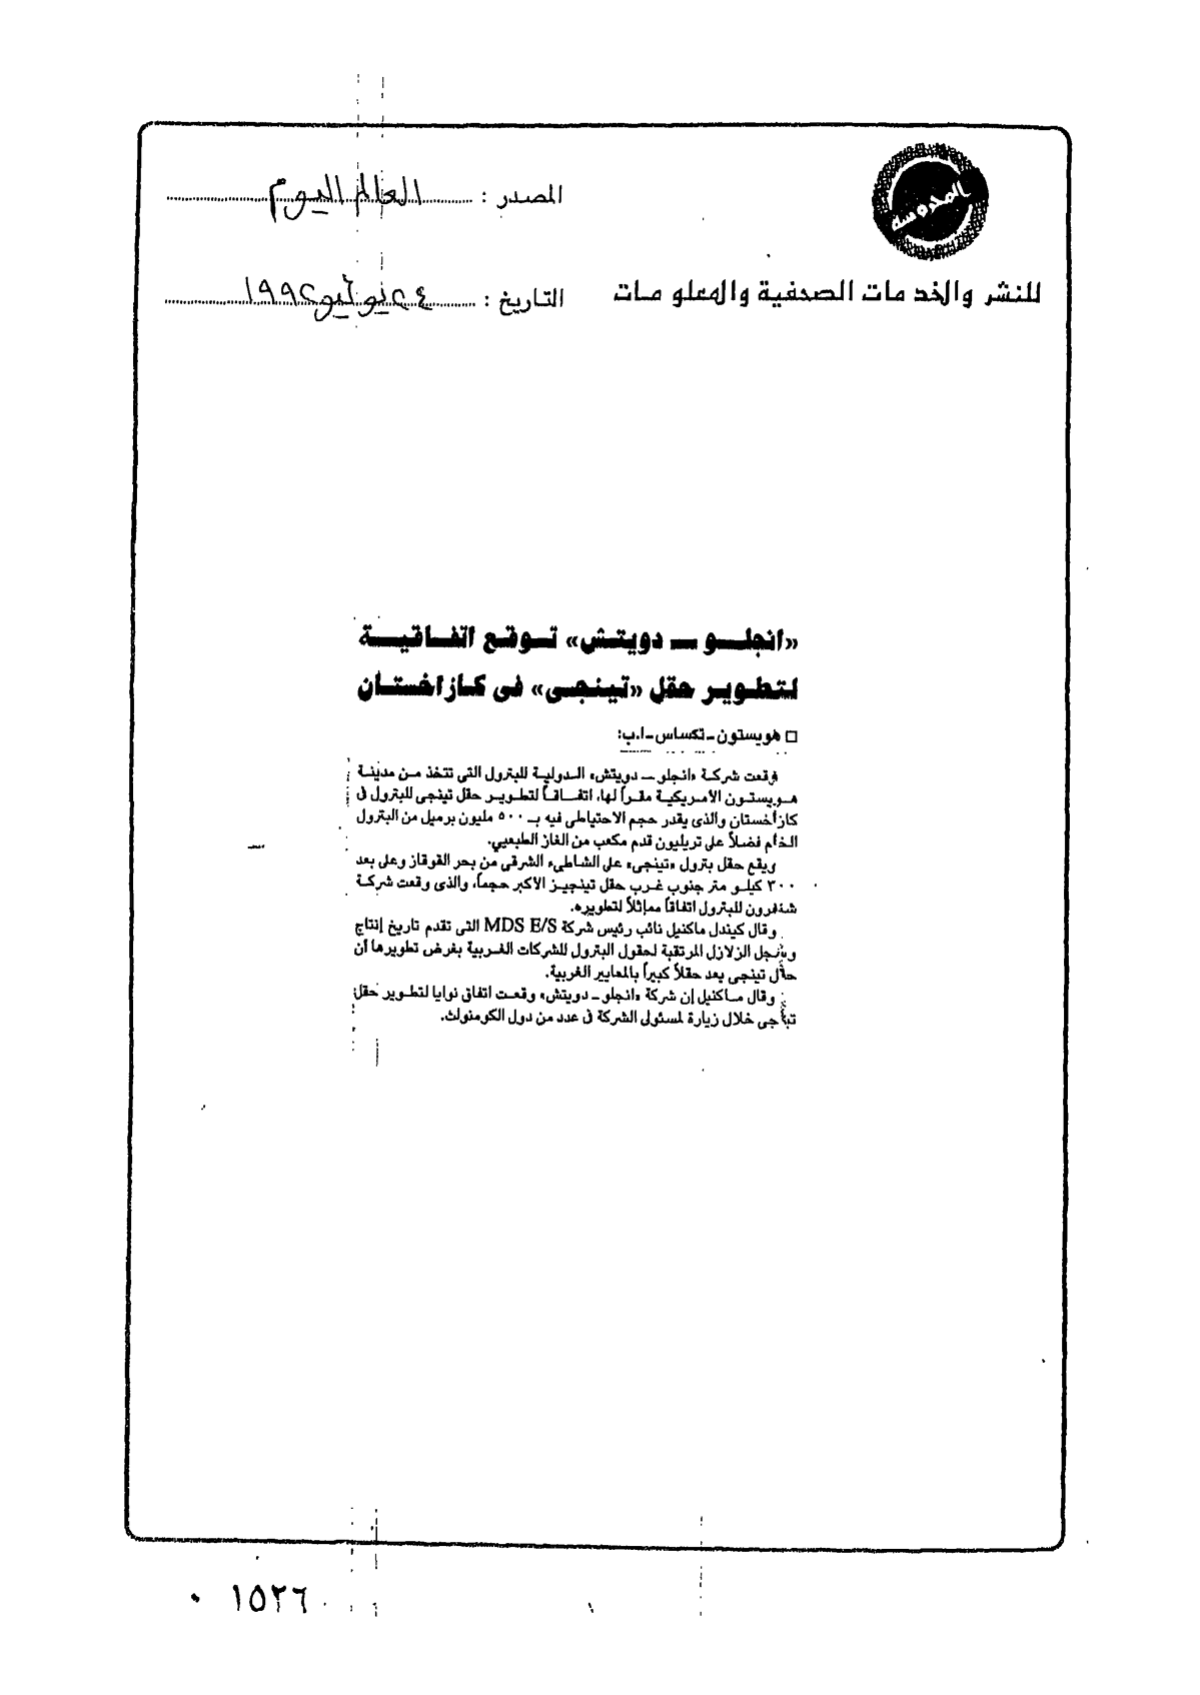 المحروسة
للنشر والخدمات الصحفية والمعلومات
المصدر : العالم اليوم
التاريخ : ٢٤ يونيو ١٩٩٢
«انجلو ـ دويتش» توقع اتفاقية
لتطوير حقل «تينجى» فى كازاخستان
□ هويستون ـ تكساس ـ ا.ب:
وقعت شركة «انجلو ـ دويتش» الدولية للبترول التى تتخذ من مدينة
هويستون الأمريكية مقراً لها، اتفاقاً لتطوير حقل تينجى للبترول فى
كازاخستان والذى يقدر حجم الاحتياطى فيه بـ ٥٠٠ مليون برميل من البترول
الخام فضلاً على تريليون قدم مكعب من الغاز الطبعيي.
ويقع حقل بترول «تينجى» على الشاطىء الشرقى من بحر القوقاز وعلى بعد
٣٠٠ كيلو متر جنوب غرب حقل تينجيز الأكبر حجما، والذى وقعت شركة
شفرون للبترول اتفاقاً مماثلاً لتطويره.
وقال كيندل ماكنيل نائب رئيس شركة MDS E/S التى تقدم تاريخ إنتاج
وسجل الزلازل المرتقبة لحقول البترول للشركات الغربية بغرض تطويرها أن
حقل تينجى يعد حقلاً كبيراً بالمعايير الغربية.
وقال ماكنيل إن شركة «انجلو ـ دويتش» وقعت اتفاق نوايا لتطوير حقل
تينجى خلال زيارة لمسئولى الشركة فى عدد من دول الكومنولث.
١٥٢٦